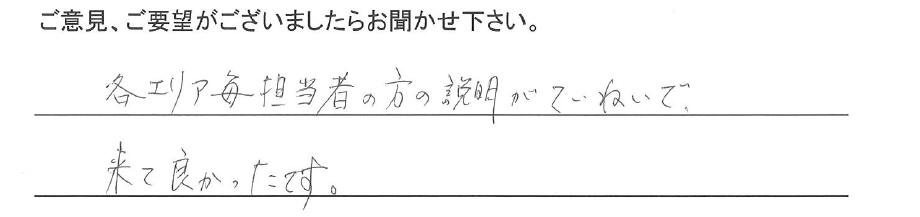 ご意見、ご要望がございましたらお聞かせ下さい。
各エリア毎担当者の方の説明がていねいで、
来て良かったです。